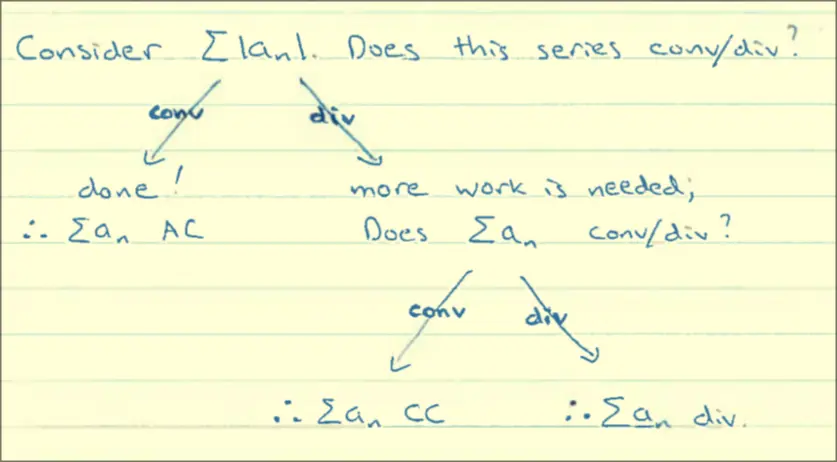 Consider Σ|aₙ|. Does this series conv/div?
conv div
done! more work is needed;
∴ Σaₙ AC Does Σaₙ conv/div?
conv div
∴ Σaₙ CC ∴ Σaₙ div.